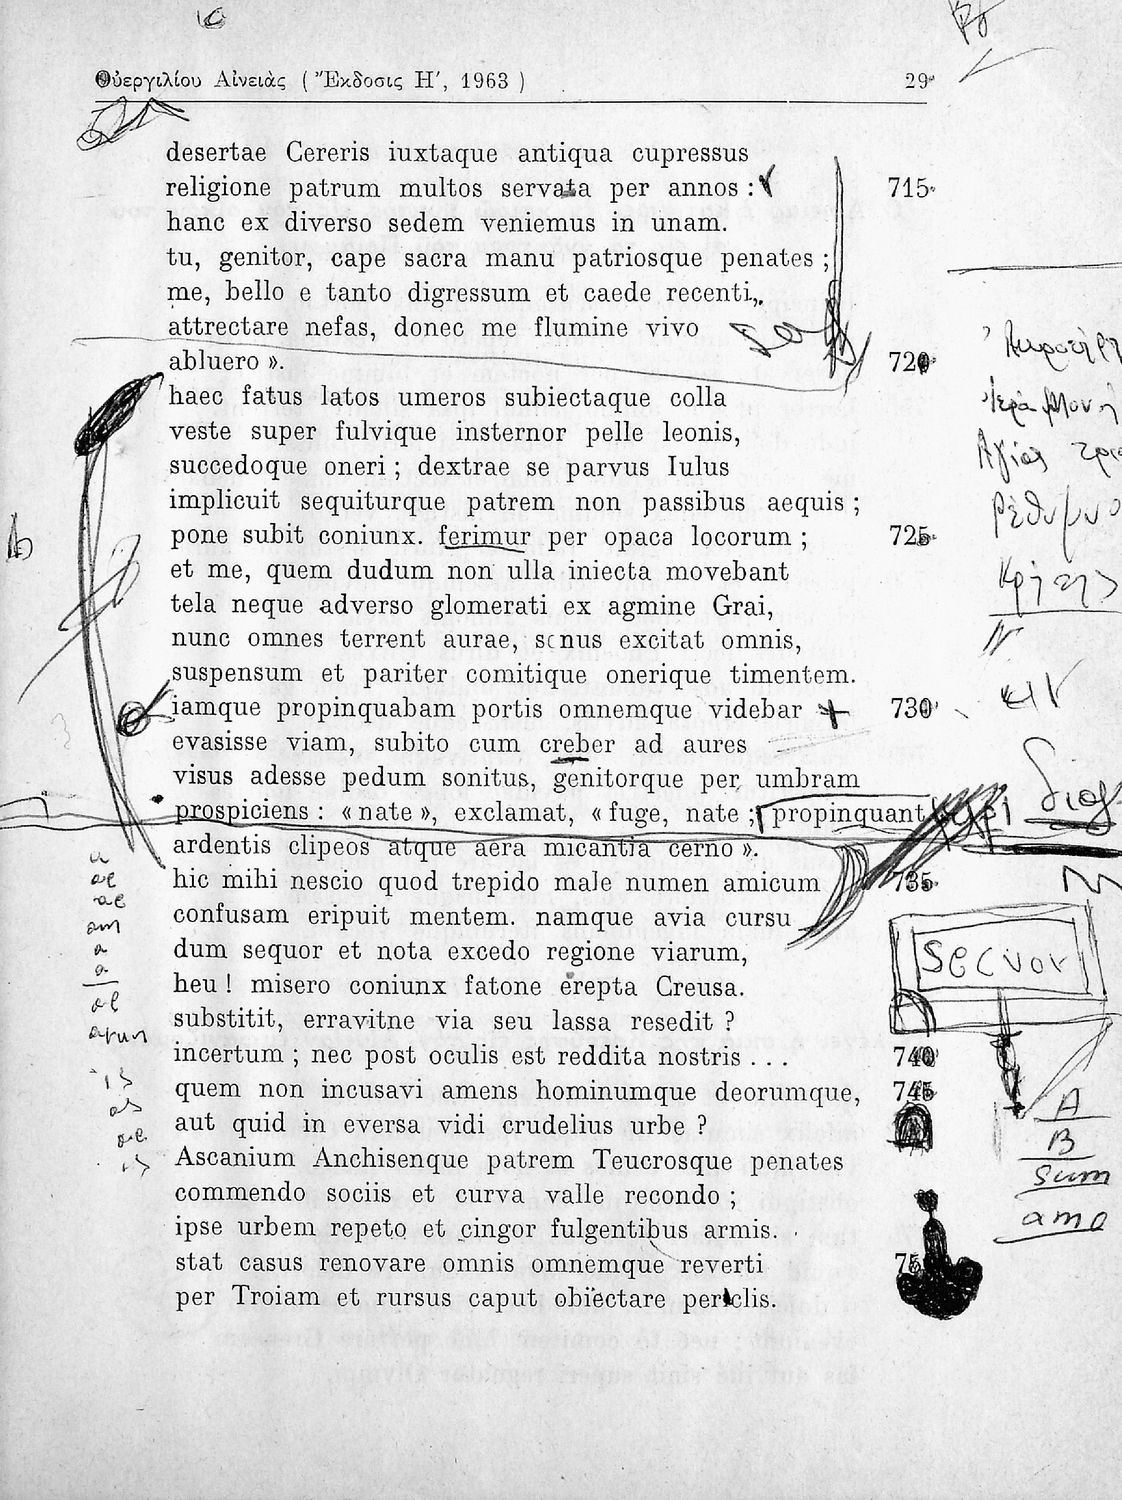 Οὐεργιλίου Αἰνειὰς ( Ἔκδοσις Η′, 1963 ) 29
desertae Cereris iuxtaque antiqua cupressus
religione patrum multos servata per annos : 715
hanc ex diverso sedem veniemus in unam.
tu, genitor, cape sacra manu patriosque penates ;
me, bello e tanto digressum et caede recenti,
attrectare nefas, donec me flumine vivo
abluero ». 720
haec fatus latos umeros subiectaque colla
veste super fulvique insternor pelle leonis,
succedoque oneri ; dextrae se parvus Iulus
implicuit sequiturque patrem non passibus aequis ;
pone subit coniunx. ferimur per opaca locorum ; 725
et me, quem dudum non ulla iniecta movebant
tela neque adverso glomerati ex agmine Grai,
nunc omnes terrent aurae, sonus excitat omnis,
suspensum et pariter comitique onerique timentem.
iamque propinquabam portis omnemque videbar 730
evasisse viam, subito cum creber ad aures
visus adesse pedum sonitus, genitorque per umbram
prospiciens : « nate », exclamat, « fuge, nate ; propinquant
ardentis clipeos atque aera micantia cerno ».
hic mihi nescio quod trepido male numen amicum 735
confusam eripuit mentem. namque avia cursu
dum sequor et nota excedo regione viarum,
heu ! misero coniunx fatone erepta Creusa.
substitit, erravitne via seu lassa resedit ?
incertum ; nec post oculis est reddita nostris . . . 740
quem non incusavi amens hominumque deorumque, 745
aut quid in eversa vidi crudelius urbe ?
Ascanium Anchisenque patrem Teucrosque penates
commendo sociis et curva valle recondo ;
ipse urbem repeto et cingor fulgentibus armis.
stat casus renovare omnis omnemque reverti 75
per Troiam et rursus caput obiectare periclis.
Ἱερὰ Μονή
Ρέθυμνο
Κρήτης
a
ae
ae
am
a
a
ae
arum
is
as
ae
is
A
B
sum
amo